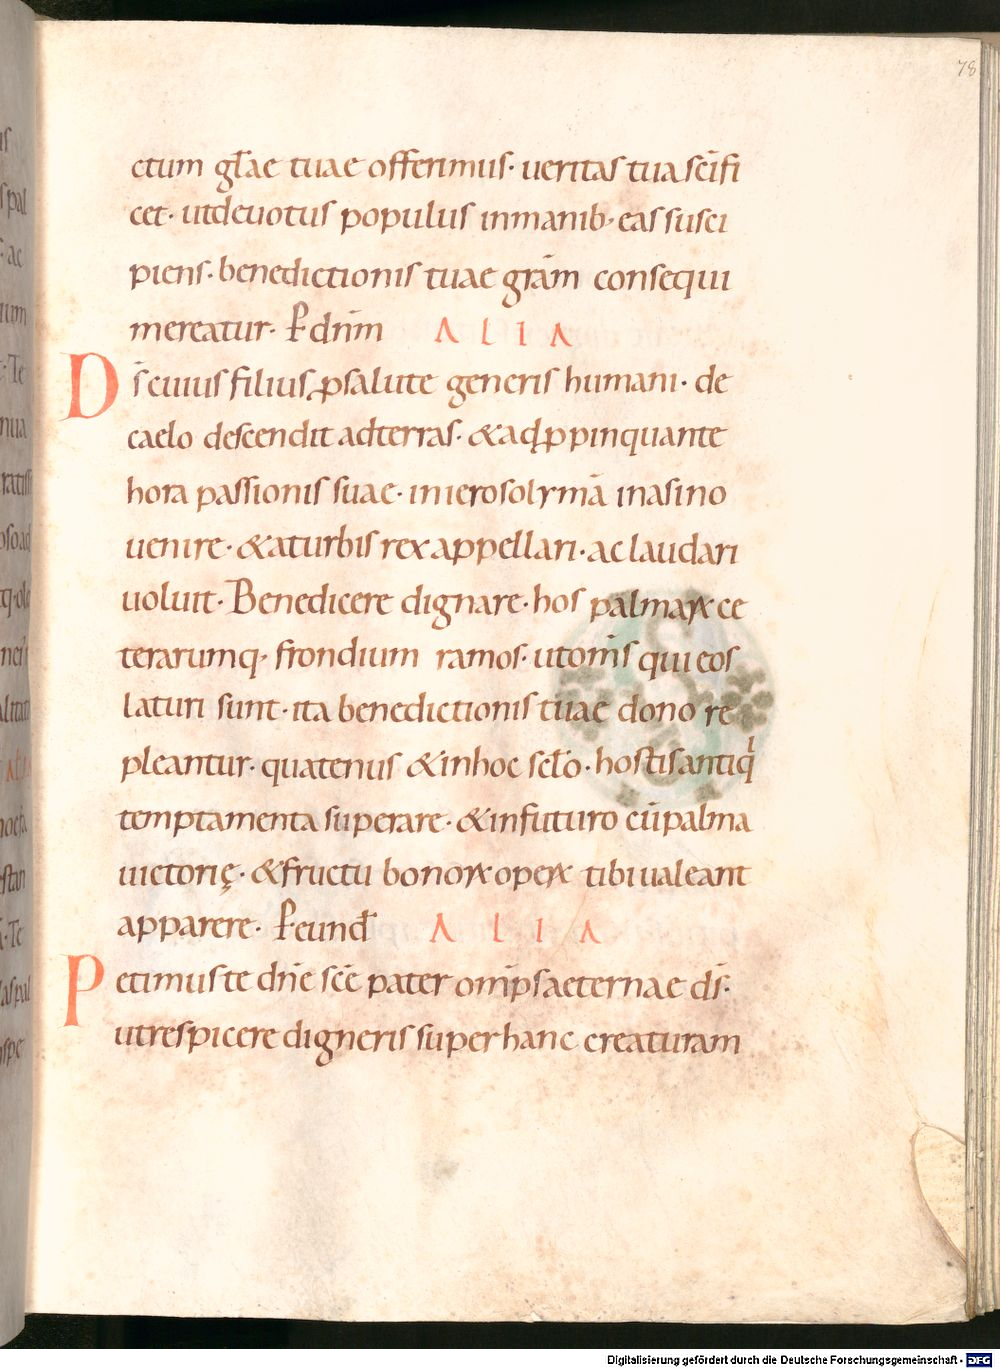 78
ctum gl̄ae tuae offerimus· ueritas tua sc̄ifi
cet· utdeuotus populus inmanib; eas susci
piens· benedictionis tuae grām consequi
mereatur· P̄ dn̄m ALIA
Ds̄ cuius filius ꝓsalute generis humani· de
caelo descendit adterras· &adꝓpinquante
hora passionis suae· inierosolymā inasino
uenire· &aturbis rex appellari· ac laudari
uoluit· Benedicere dignare· hos palmaꝝ ce
terarumq; frondium ramos· utom̄s qui eos
laturi sunt· ita benedictionis tuae dono re
pleantur· quatenus &inhoc sclo· hostis antiqi
temptamenta superare· &infuturo cū palma
uictorię· &fructu bonoꝝ opeꝝ tibi ualeant
apparere· P̄ eund̄ ALIA
Petimus te dn̄e sc̄e pater omp̄s aeternae ds̄·
utrespicere digneris super hanc creaturam
Digitalisierung gefördert durch die Deutsche Forschungsgemeinschaft - DFG